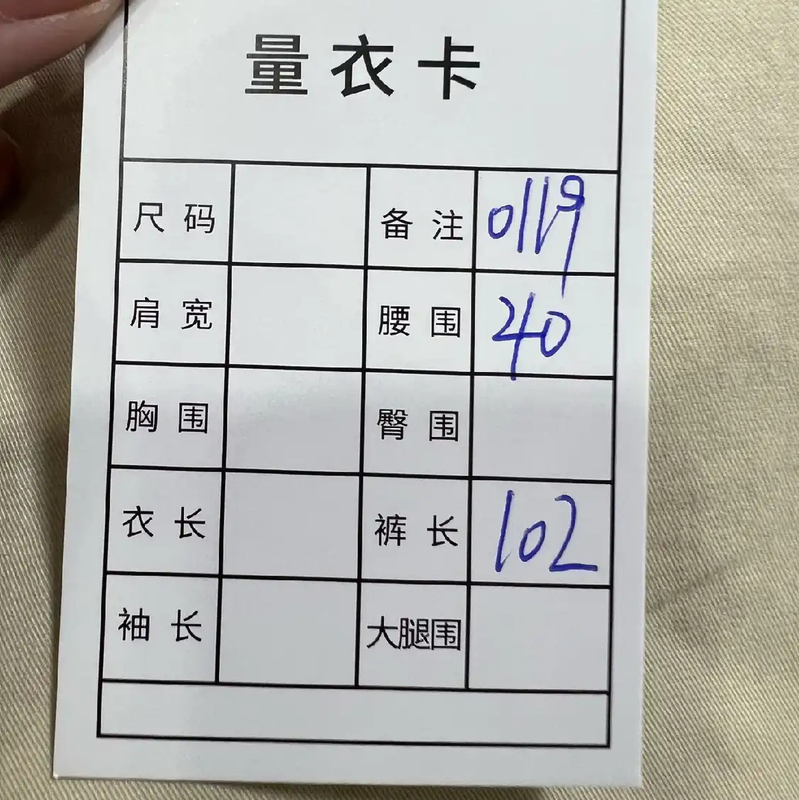 量衣卡
尺码 备注 0119
肩宽 腰围 40
胸围 臀围
衣长 裤长 102
袖长 大腿围